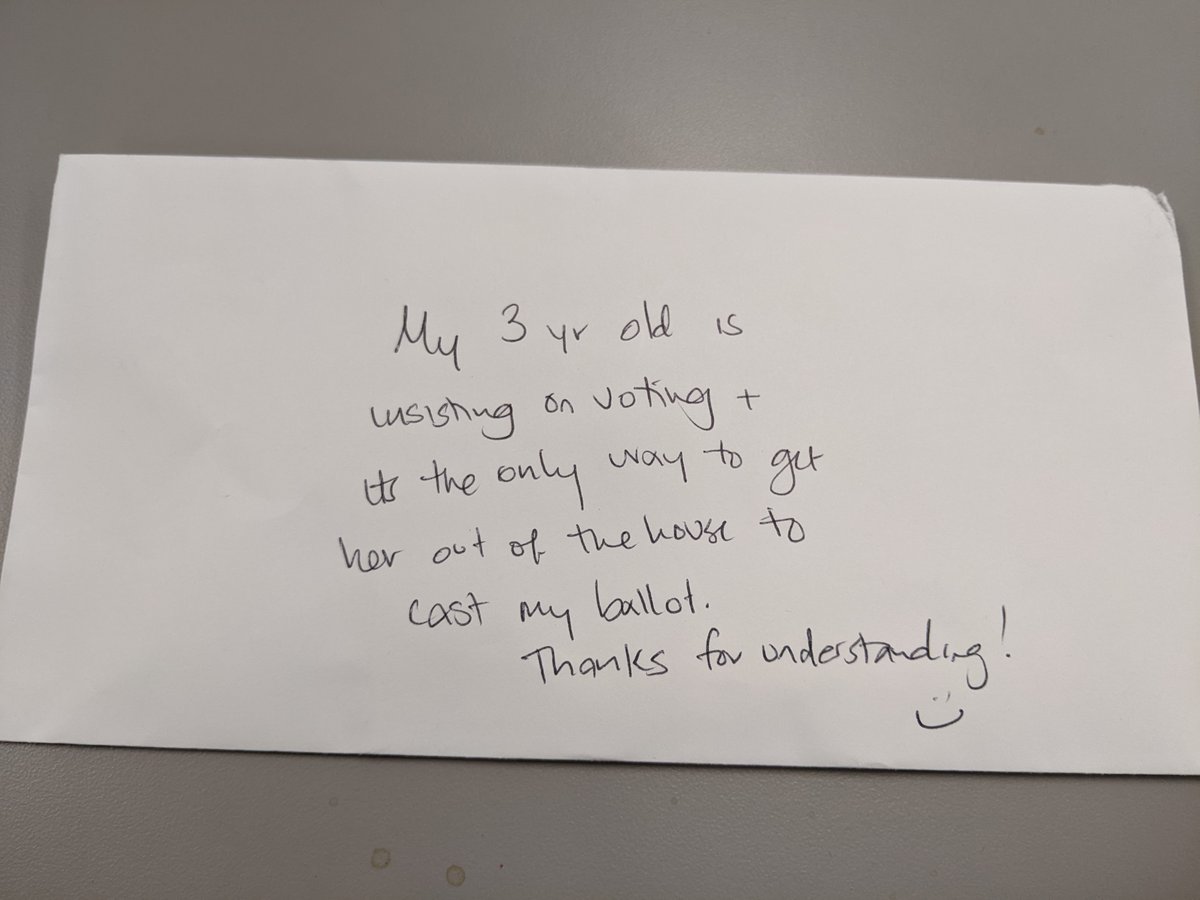 My 3 yr old is
insisting on voting +
its the only way to get
her out of the house to
cast my ballot.
Thanks for understanding!